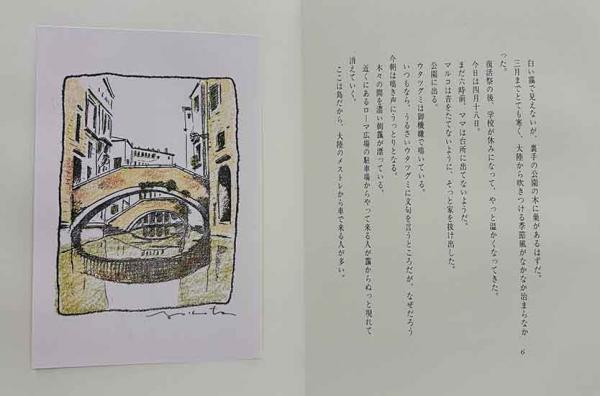 白い靄で見えないが、裏手の公園の木に巣があるはずだ。
三月までとても寒く、大陸から吹きつける季節風がなかなか治まらなか
った。
今日は四月十八日。
復活祭の後、学校が休みになって、やっと温かくなってきた。
まだ六時前、ママは台所に出てないようだ。
マルコは音をたてないように、そっと家を抜け出した。
公園に出る。
ウタツグミは御機嫌で鳴いている。
いつもなら、うるさいウタツグミに文句を言うところだが、なぜだろう
今朝は鳴き声にうっとりとなる。
木々の間を濃い朝靄が漂っている。
近くにあるローマ広場の駐車場からやって来る人が靄からぬっと現れて
消えていく。
ここは島だから、大陸のメストレから車で来る人が多い。
6